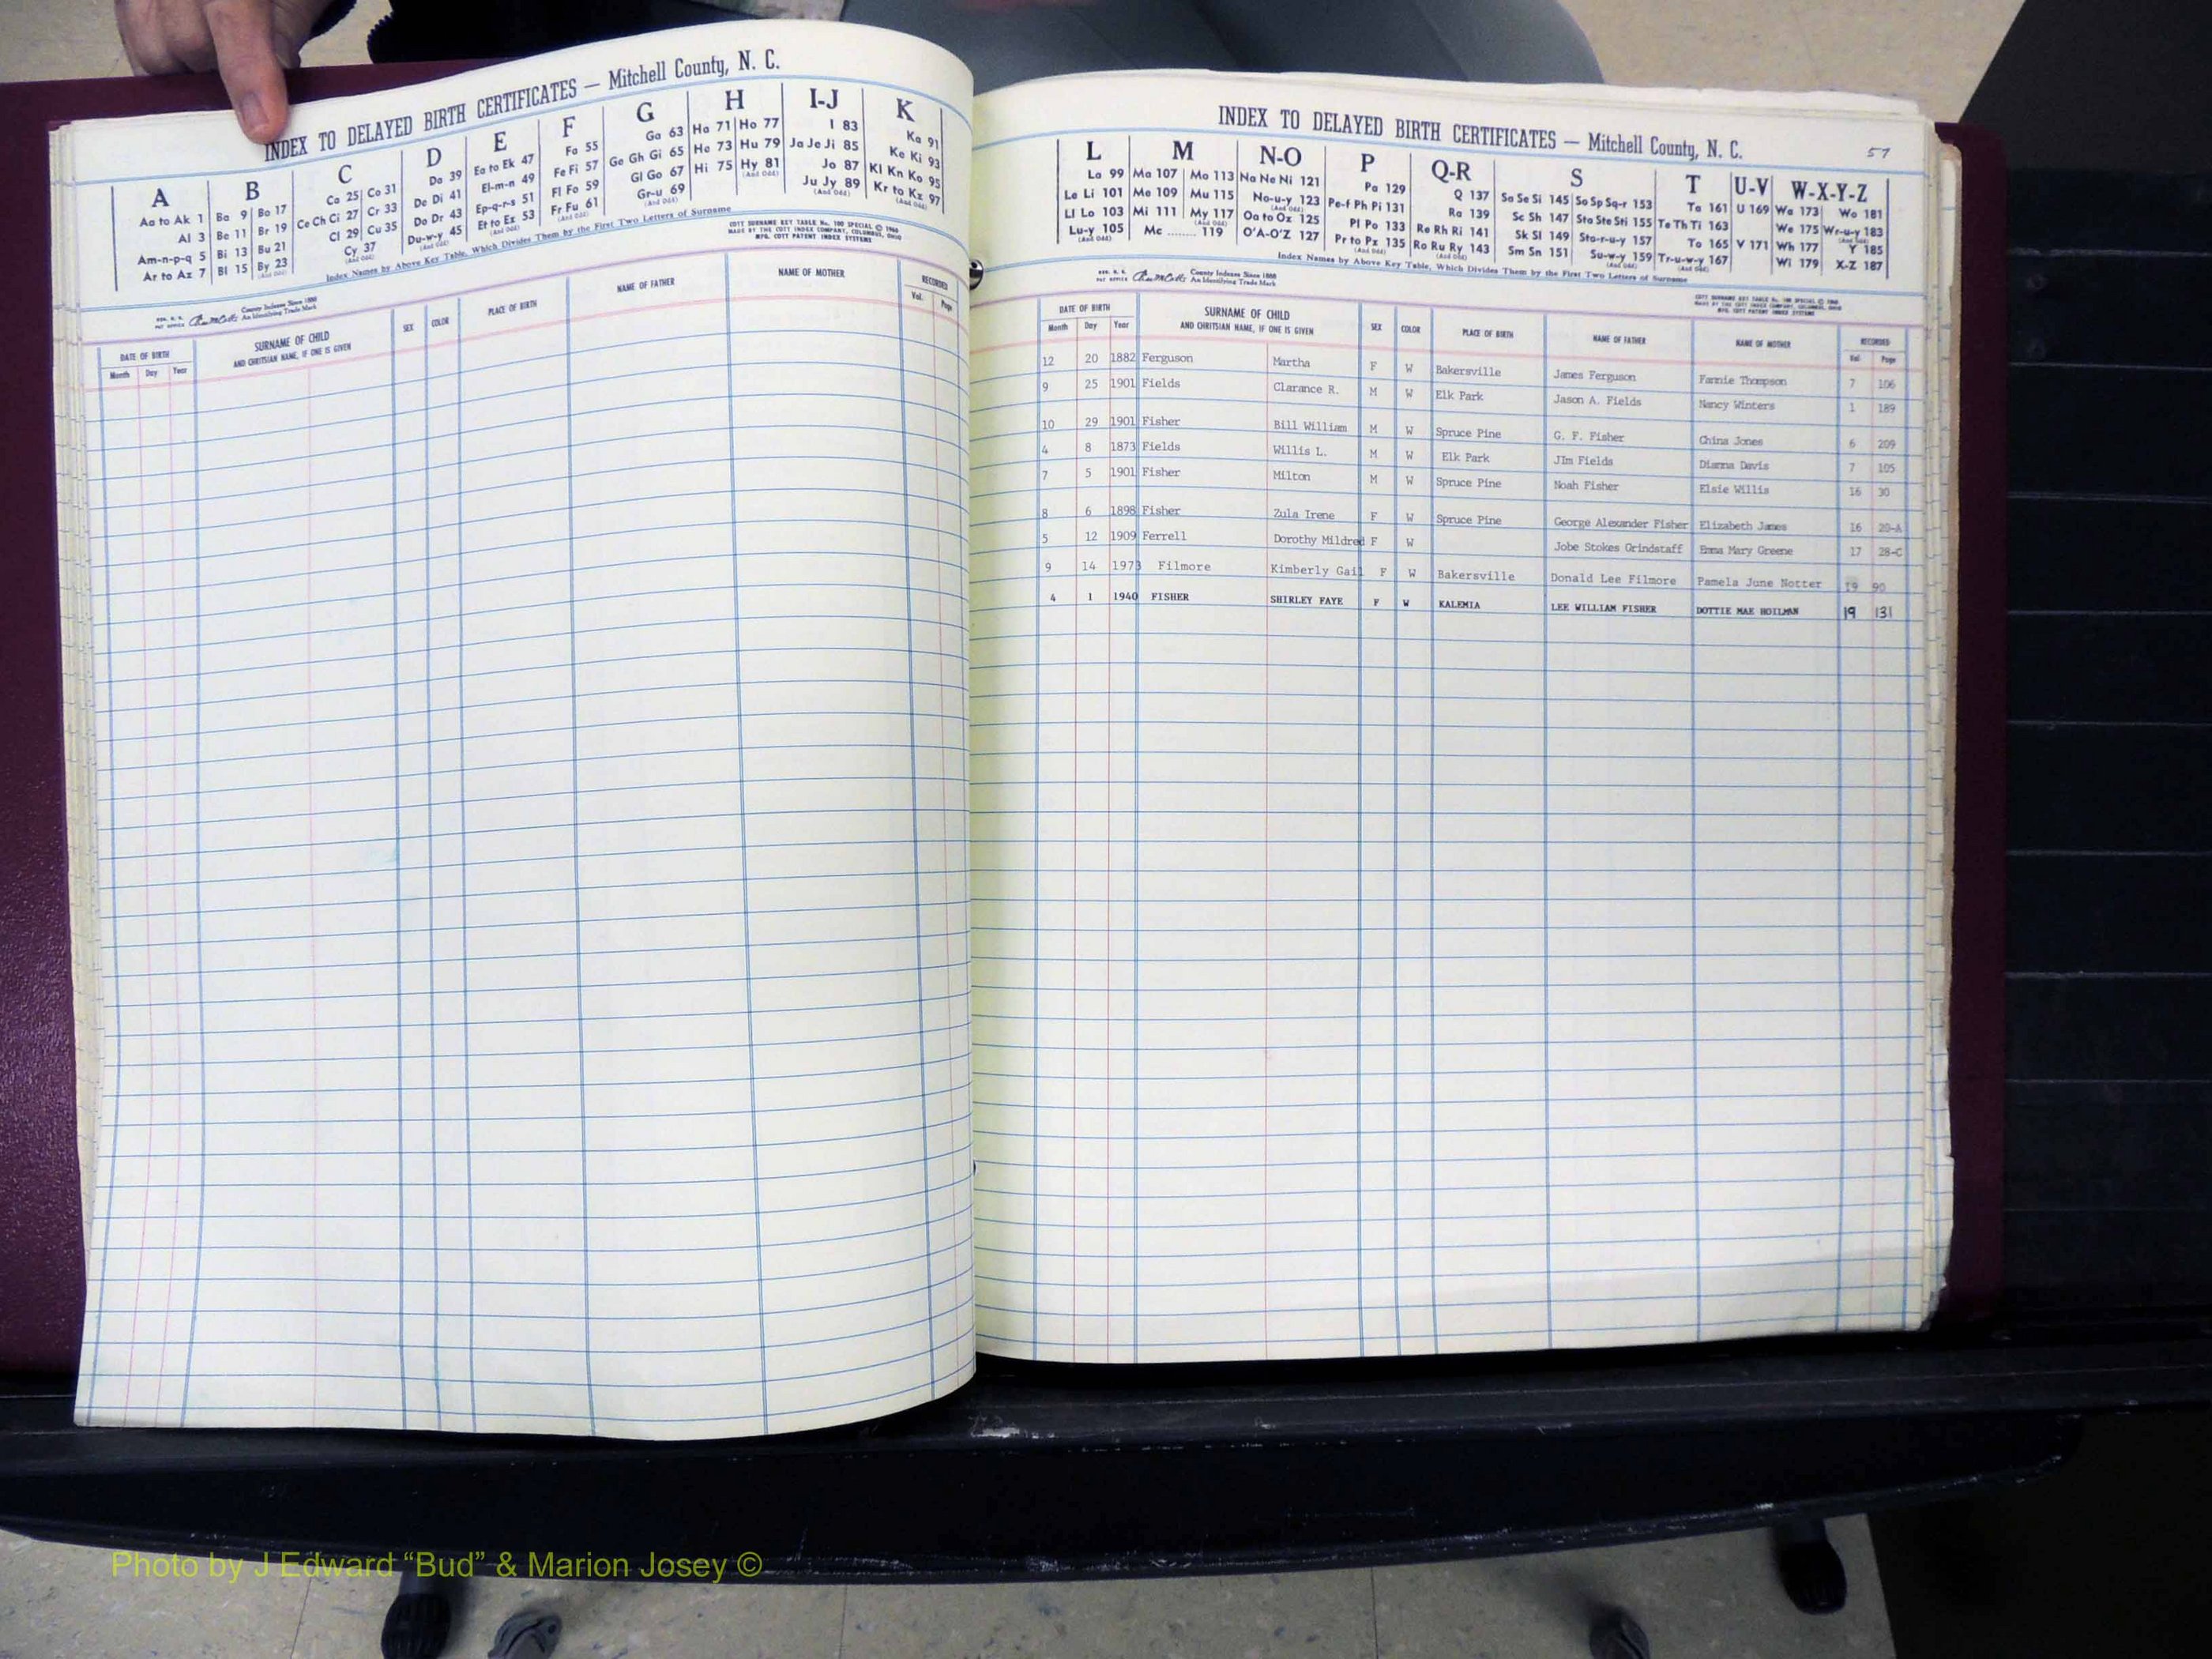 INDEX TO DELAYED BIRTH CERTIFICATES — Mitchell County, N. C.
A B C D E F G H I-J K
Aa to Ak 1 Ba 9 Bo 17 Ca 25 Co 31 Da 39 Ea to Ek 47 Fa 55 Ga 63 Ha 71 Ho 77 I 83 Ka 91
Al 3 Be 11 Br 19 Ce Ch Ci 27 Cr 33 De Di 41 El-m-n 49 Fe Fi 57 Ge Gh Gi 65 He 73 Hu 79 Ja Je Ji 85 Ke Ki 93
Am-n-p-q 5 Bi 13 Bu 21 Cl 29 Cu 35 Do Dr 43 Ep-q-r-s 51 Fl Fo 59 Gl Go 67 Hi 75 Hy 81 Jo 87 Kl Kn Ko 95
Ar to Az 7 Bl 15 By 23 Cy 37 Du-w-y 45 Et to Ex 53 Fr Fu 61 Gr-u 69 (And Odd) Ju Jy 89 Kr to Kz 97
Index Names by Above Key Table, Which Divides Them by the First Two Letters of Surname
COTT SURNAME KEY TABLE No. 100 SPECIAL © 1966
MADE BY THE COTT INDEX COMPANY, COLUMBUS, OHIO
MFG. COTT PATENT INDEX SYSTEMS
County Indexes Since 1888
An Identifying Trade Mark
DATE OF BIRTH SURNAME OF CHILD SEX COLOR PLACE OF BIRTH NAME OF FATHER NAME OF MOTHER RECORDED
Month Day Year AND CHRITSIAN NAME, IF ONE IS GIVEN Vol. Page
INDEX TO DELAYED BIRTH CERTIFICATES — Mitchell County, N. C. 57
L M N-O P Q-R S T U-V W-X-Y-Z
La 99 Ma 107 Mo 113 Na Ne Ni 121 Pa 129 Q 137 Sa Se Si 145 So Sp Sq-r 153 Ta 161 U 169 Wa 173 Wo 181
Le Li 101 Me 109 Mu 115 No-u-y 123 Pe-f Ph Pi 131 Ra 139 Sc Sh 147 Sta Ste Sti 155 Te Th Ti 163 We 175 Wr-u-y 183
Ll Lo 103 Mi 111 My 117 Oa to Oz 125 Pl Po 133 Re Rh Ri 141 Sk Sl 149 Sto-r-u-y 157 To 165 V 171 Wh 177 Y 185
Lu-y 105 Mc ........ 119 O'A-O'Z 127 Pr to Pz 135 Ro Ru Ry 143 Sm Sn 151 Su-w-y 159 Tr-u-w-y 167 Wi 179 X-Z 187
Index Names by Above Key Table, Which Divides Them by the First Two Letters of Surname
County Indexes Since 1888
An Identifying Trade Mark
COTT SURNAME KEY TABLE No. 100 SPECIAL © 1966
MADE BY THE COTT INDEX COMPANY, COLUMBUS, OHIO
MFG. COTT PATENT INDEX SYSTEMS
DATE OF BIRTH SURNAME OF CHILD SEX COLOR PLACE OF BIRTH NAME OF FATHER NAME OF MOTHER RECORDED
Month Day Year AND CHRITSIAN NAME, IF ONE IS GIVEN Vol. Page
12 20 1882 Ferguson Martha F W Bakersville James Ferguson Fannie Thompson 7 106
9 25 1901 Fields Clarance R. M W Elk Park Jason A. Fields Nancy Winters 1 189
10 29 1901 Fisher Bill William M W Spruce Pine G. F. Fisher China Jones 6 209
4 8 1873 Fields Willis L. M W Elk Park JIm Fields Dianna Davis 7 105
7 5 1901 Fisher Milton M W Spruce Pine Noah Fisher Elsie Willis 16 30
8 6 1898 Fisher Zula Irene F W Spruce Pine George Alexander Fisher Elizabeth James 16 20-A
5 12 1909 Ferrell Dorothy Mildred F W Jobe Stokes Grindstaff Emma Mary Greene 17 28-C
9 14 1973 Filmore Kimberly Gail F W Bakersville Donald Lee Filmore Pamela June Notter 19 90
4 1 1940 FISHER SHIRLEY FAYE F W KALEMIA LEE WILLIAM FISHER DOTTIE MAE HOILMAN 19 131
Photo by J Edward “Bud” & Marion Josey ©